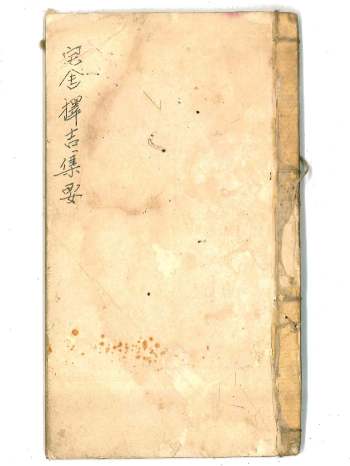 宅舍擇吉集要